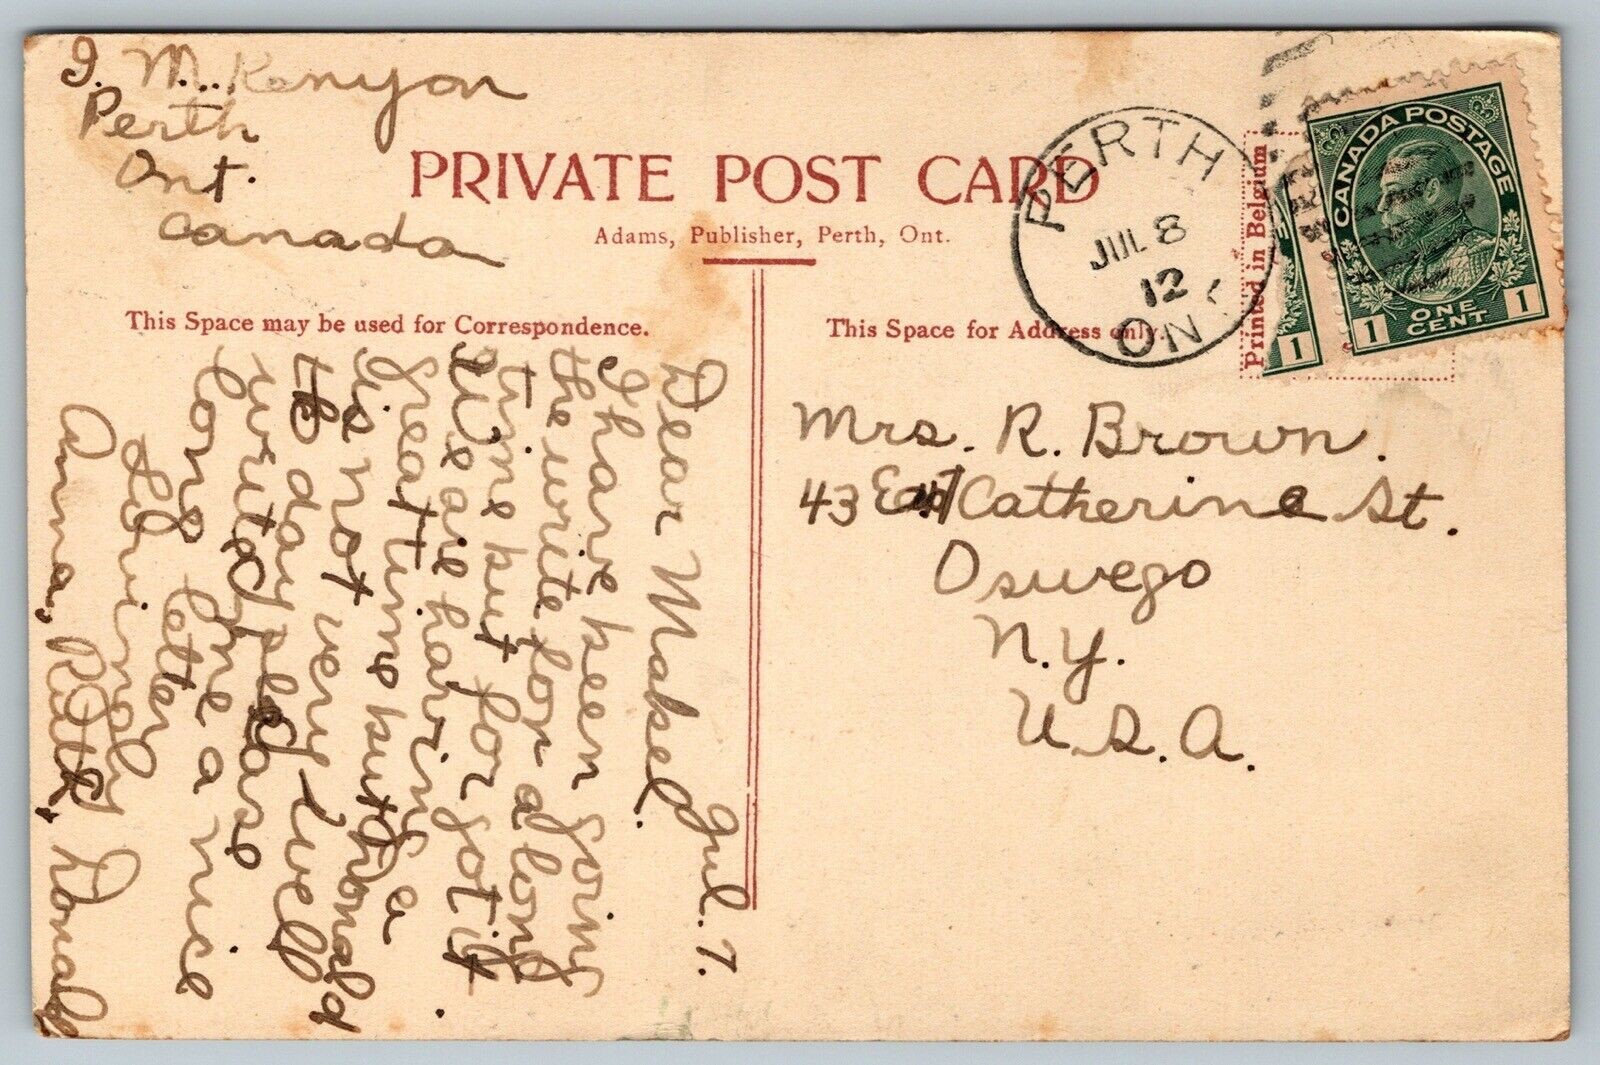 I. M. Kenyon
Perth
Ont.
Canada
PRIVATE POST CARD
Adams, Publisher, Perth, Ont.
This Space may be used for Correspondence.
This Space for Address only.
Printed in Belgium
PERTH
JUL 8
12
ONT
CANADA POSTAGE
1 ONE CENT 1
1
Jul. 7.
Dear Mabel.
I have been going
the write for a long
time but for got it.
We are having a
great time but Donald
is not very well
the day please
write me a nice
long letter
Lovingly
Anna, Ruth, Donald
Mrs. R. Brown.
43 East Catherine St.
Oswego
N.Y.
U.S.A.